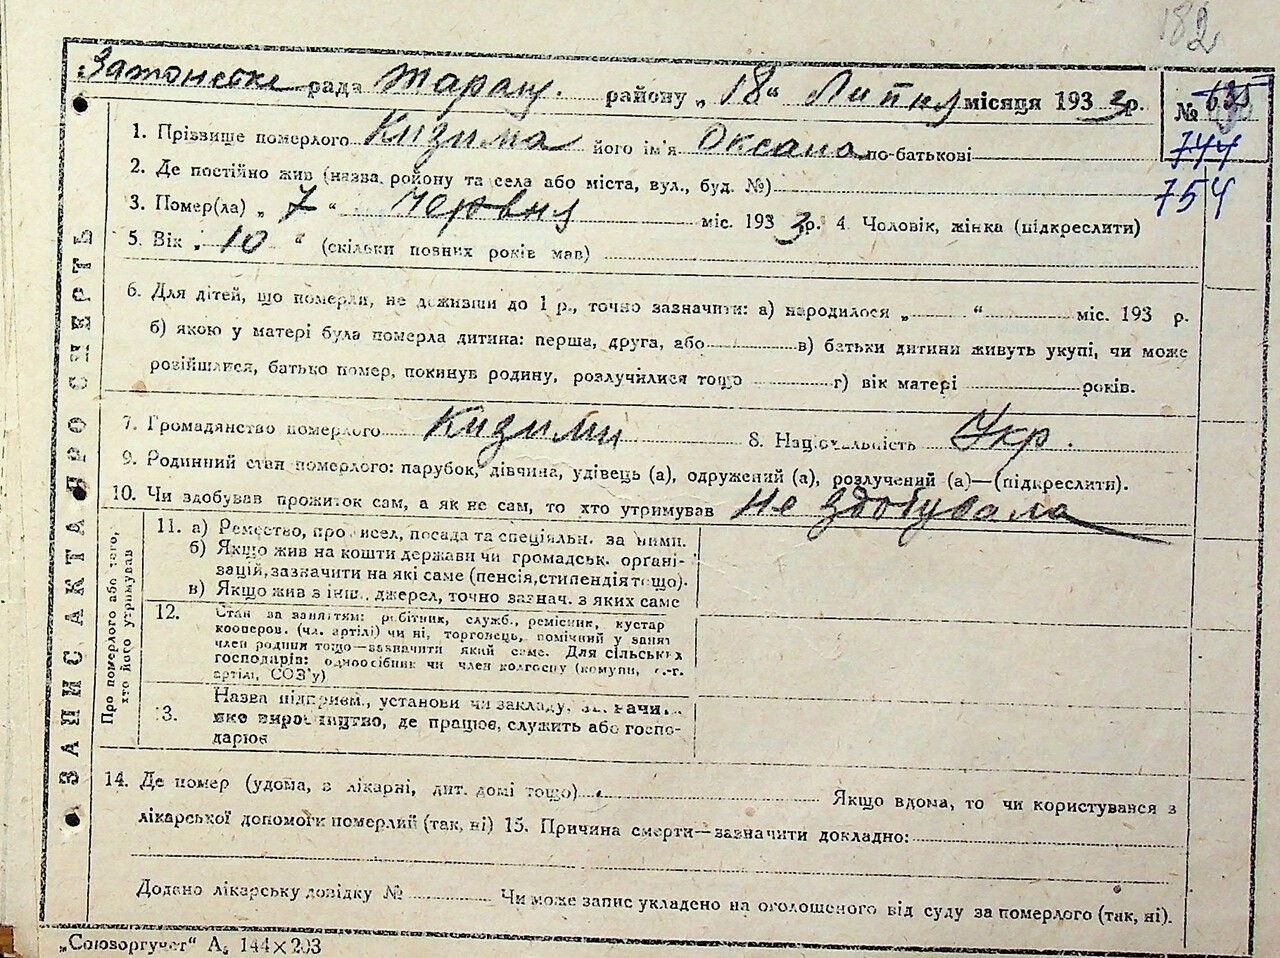 182
рада Таращ. району „18“ Липня місяця 1933р.
№ 635
744
754
1. Прізвище померлого Кизима його ім'я Оксана по-батькові
2. Де постійно жив (назва району та села або міста, вул., буд. №)
3. Помер(ла) „7“ Червня міс. 1933р. 4. Чоловік, жінка (підкреслити)
5. Вік „10“ (скільки повних років мав)
6. Для дітей, що померли, не доживши до 1 р., точно зазначити: а) народилося „ “ міс. 193 р.
б) якою у матері була померла дитина: перша, друга, або в) батьки дитини живуть укупі, чи може
розійшлися, батько помер, покинув родину, розлучилися тощо г) вік матері років.
7. Громадянство померлого Кизими 8. Національність Укр.
9. Родинний стан померлого: парубок, дівчина, удівець (а), одружений (а), розлучений (а)—(підкреслити).
10. Чи здобував прожиток сам, а як не сам, то хто утримував Не здобувала
Про померлого або того,
хто його утримував
11. а) Ремество, промисел, посада та спеціяльн. за ними.
б) Якщо жив на кошти держави чи громадськ. орґані-
зацій, зазначити на які саме (пенсія, стипендія тощо).
в) Якщо жив з інш. джерел, точно зазнач. з яких саме
12. Стан за заняттям: робітник, служб., ремісник, кустар
кооперов. (чл. артілі) чи ні, торговець, помічний у занят
член родини тощо—зазначити який саме. Для сільських
господарів: одноосібник чи член колгоспу (комуни, с.-г.
артілі, СОЗ'у)
13. Назва підприєм., установи чи закладу, зазначи
яке виробництво, де працює, служить або госпо-
дарює
14. Де помер (удома, в лікарні, дит. домі тощо) Якщо вдома, то чи користувався з
лікарської допомоги померлий (так, ні) 15. Причина смерти—зазначити докладно:
Додано лікарську довідку № Чи може запис укладено на оголошеного від суду за померлого (так, ні).
ЗАПИС АКТА ПРО СМЕРТЬ
„Союзоргучет“ А₅ 144×203